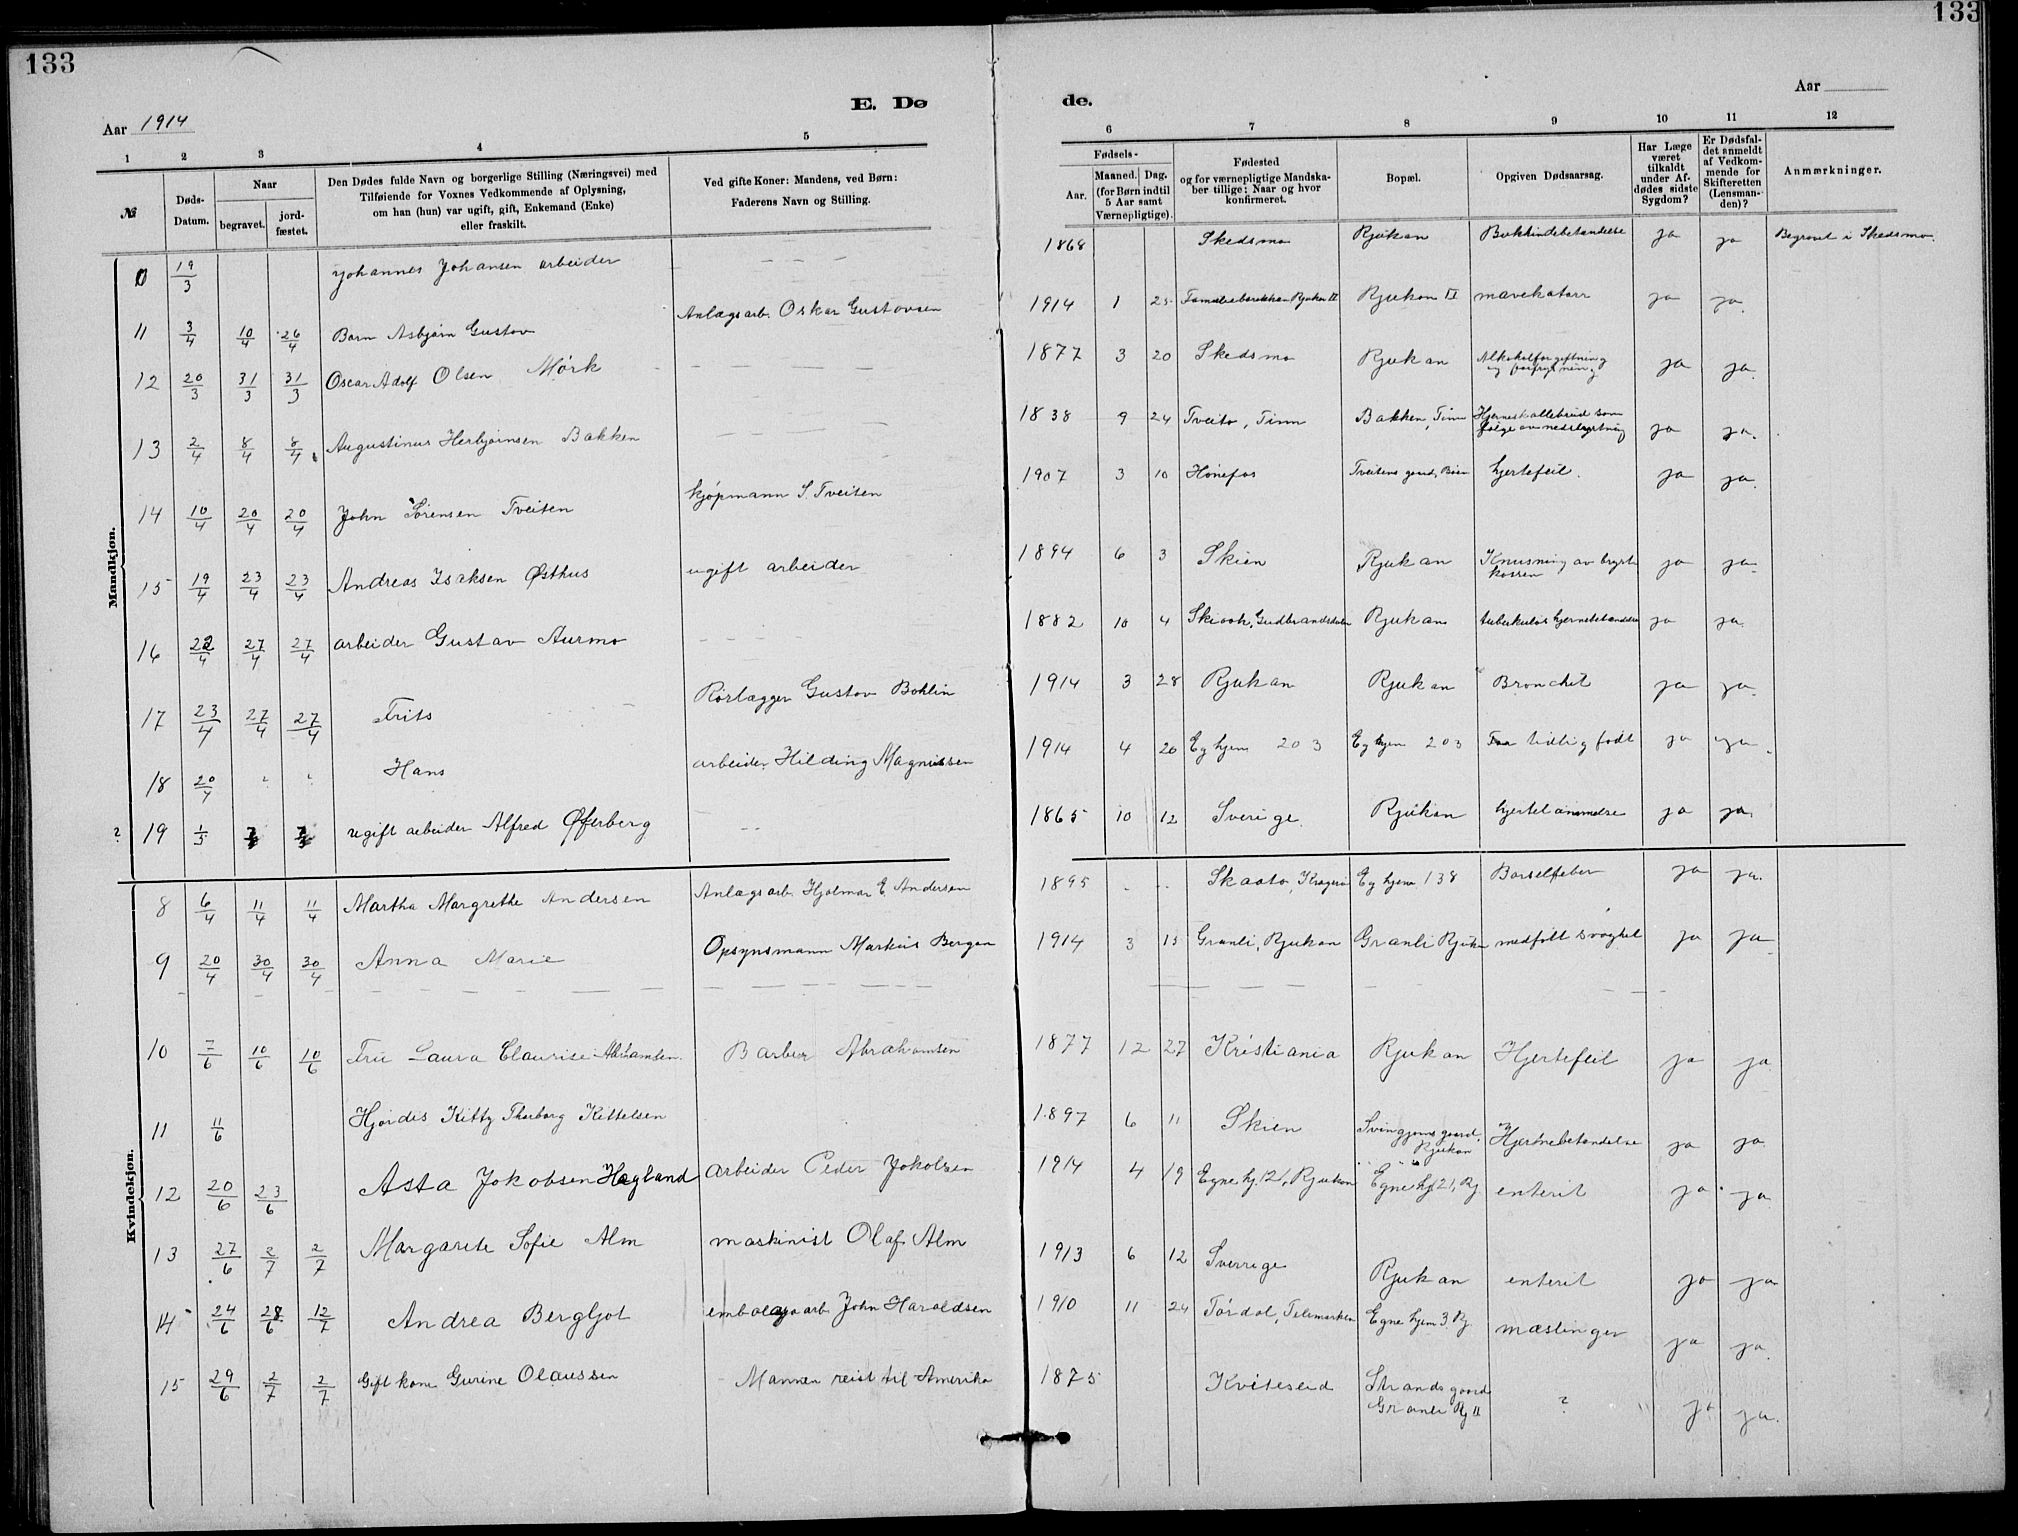 133
133
E. Dø
de.
Aar 1914
Aar
1 2 3 4 5
6 7 8 9 10 11 12
№
Døds-Datum.
Naar
begravet.
jord-fæstet.
Den Dødes fulde Navn og borgerlige Stilling (Næringsvei) med
Tilføiende for Voxnes Vedkommende af Oplysning,
om han (hun) var ugift, gift, Enkemand (Enke)
eller fraskilt.
Ved gifte Koner: Mandens, ved Børn:
Faderens Navn og Stilling.
Fødsels-
Aar.
Maaned. Dag.
(for Børn indtil
5 Aar samt
Værnepligtige).
Fødested
og for værnepligtige Mandska-
ber tillige: Naar og hvor
konfirmeret.
Bopæl.
Opgiven Dødsaarsag.
Har Læge
været
tilkaldt
under Af-
dødes sidste
Sygdom?
Er Dødsfal-
det anmeldt
af Vedkom-
mende for
Skifteretten
(Lensman-
den)?
Anmærkninger.
Mandkjøn.
0 19/3 Johannes Johansen arbeider 1868 Skedsmo Rjukan ja ja Begravet i Skedsmo.
11 3/4 10/4 26/4 Barn Asbjørn Gustav Anlægsarb. Oskar Gustavsen 1914 1 25 Rjukan II mavekatarr ja ja.
12 20/3 31/3 31/3 Oscar Adolf Olsen Mørk 1877 3 20 Skedsmo Rjukan Alkoholforgiftning
og forfrysning ja ja.
13 2/4 8/4 8/4 Augustinus Herbjørnsen Bakken 1838 9 24 Tveito, Tinn Bakken, Tinn Hjerneskallebrud som
følge av nedstyrtning ja ja.
14 10/4 20/4 20/4 John Sørensen Tveiten kjøpmann S. Tveiten 1907 3 10 Hønefos Tveitens gaard, Bøen hjertefeil. ja ja.
15 19/4 23/4 23/4 Andreas Isaksen Østhus ugift arbeider 1894 6 3 Skien Rjukan Knusning av bryst
kassen ja ja.
16 22/4 27/4 27/4 arbeider Gustav Aurmo 1882 10 4 Skiaak, Gudbrandsdalen Rjukan tuberkuløs hjernebetændelse ja ja.
17 23/4 27/4 27/4 Frits Rørlægger Gustav Bohlin 1914 3 28 Rjukan Rjukan Bronchit ja ja.
18 20/4 " " Hans arbeider Hilding Magnissen 1914 4 20 Eg hjem 203 Eg hjem 203 For tidlig født ja ja.
? 19 1/5 ugift arbeider Alfred Øferberg 1865 10 12 Sverige. Rjukan hjertelammelse ja ja.
Kvindekjøn.
8 6/4 11/4 11/4 Martha Margrethe Andersen Anlægsarb. Hjalmar E Andersen 1895 Skaato, Kragerø Eg hjem 138 Barselfeber ja ja.
9 20/4 30/4 30/4 Anna Marie Opsynsmann Markus Bergan 1914 3 15 Granli, Rjukan Granli Rjukan medfødt svaghet ja ja.
10 7/6 10/6 10/6 Fru Laura Claurise Abrahamsen. Barber Abrahamsen 1877 12 27 Kristiania Rjukan Hjertefeil ja ja
11 11/6 Hjørdis Kitty Tharborg Kittelsen 1897 6 11 Skien Svingjoms gaard,
Rjukan Hjernebetændelse ja ja
12 20/6 23/6 Asta Jokobsen Hagland arbeider Peder Jokobsen 1914 4 19 Egne hj. 121, Rjukan Egne hj 21, Rj enterit ja ja
13 27/6 2/7 2/7 Margarete Sofie Alm maskinist Olaf Alm 1913 6 12 Sverrige Rjukan enterit ja ja
14 24/6 28/6 12/7 Andrea Bergljot embalagearb. John Haroldsen 1910 11 24 Tørdal, Telemarken Egne hjem 3 Rj. mæslinger ja ja.
15 29/6 2/7 2/7 Gift kone Gurine Olaussen Mannen reist til Amerika 1875 Kviteseid Strandsgaard
Granli Rj II ? ja ja.